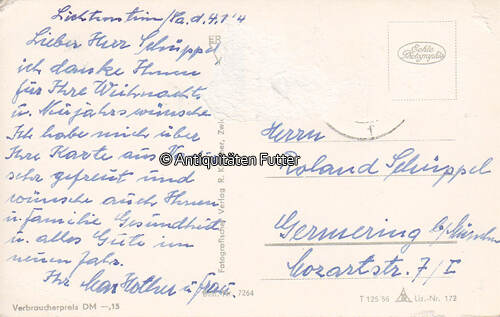 Lichtenstein/Sa. d. 4.1.
Lieber Herr Schüppel
ich danke Ihnen
für Ihre Weihnachts
u. Neujahrswünsche
Ich habe mich über
Ihre Karte aus
sehr gefreut und
wünsche auch Ihnen
u. familie Gesundheit
u. alles Gute im
neuen Jahr.
Ihr u. Frau.
Verbraucherpreis DM —,15
7264
Fotografischer Verlag R.
Echte
Photographie
Herrn
Roland Schüppel
Germering b/München
Mozartstr. 7/I
T 125 56 Liz.-Nr. 172
© Antiquitäten Futter